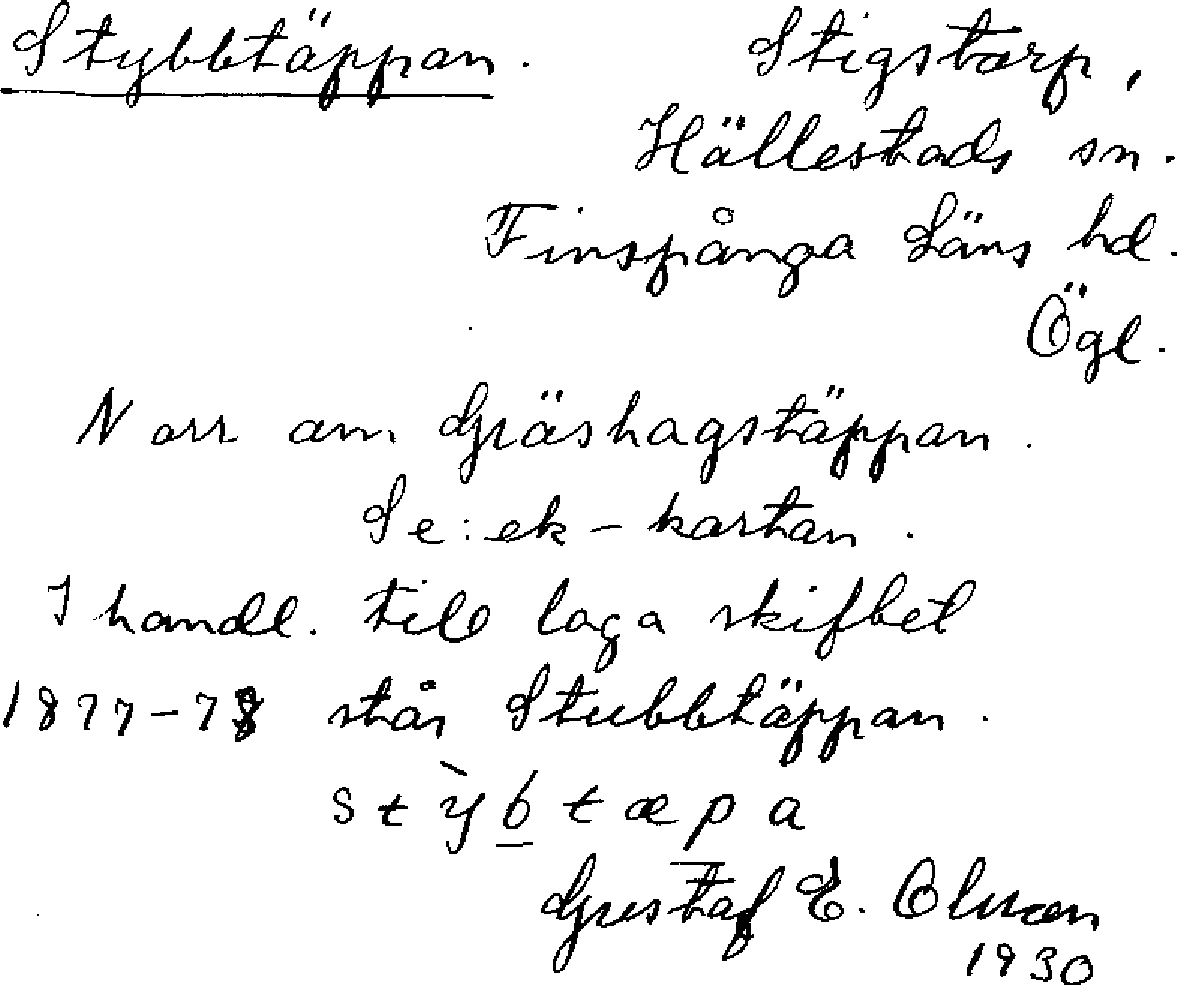 Stybbtäppan. Stigstorp,
Hällestads sn.
Finspånga Läns hd.
Ögl.
Norr om Gräshagstäppan.
Se: ek-kartan.
I handl. till laga skiftet
1877-78 står Stubbtäppan.
stỳbtæpa
Gustaf E.
1930